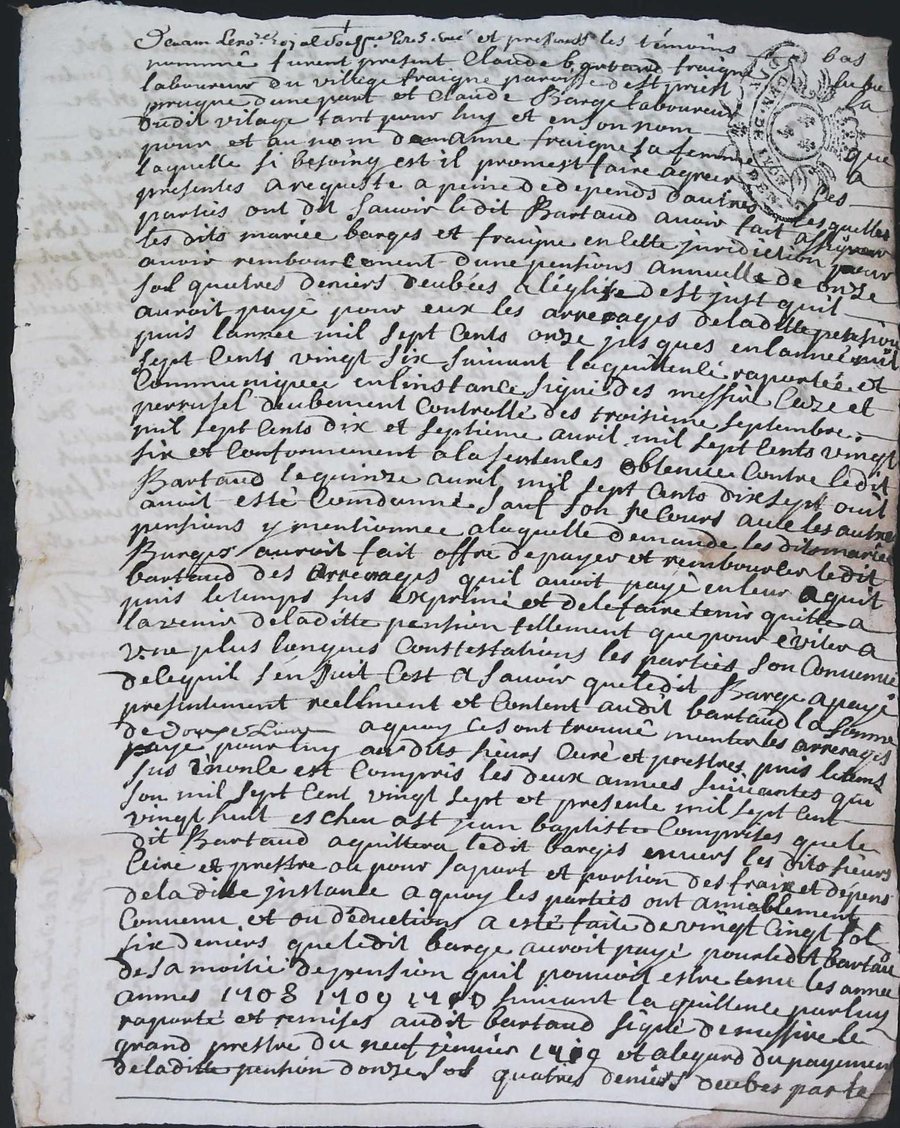 nommé furent present Claude bartaud fraigne
laboureur du village fraigne paroisse dest priest
prugne dune part et Claude Barge laboureur
dudit vilage tant pour luy et en son nom
pour et au nom de anne fraigne sa femme
laquelle si besoing est il promest faire agreer
presentes a requeste a peine de depends dautres les quelles
partiës ont dit savoir ledit Bartaud avoir fait assigner
les dits marieë barges et fraigne en cette juridiction pour
avoir rembourcement dune pensions annuelle de onze
sol quatres deniers deubëes a léglise dest just quil
auroit payé pour eux les arrerages de laditte pension
puis lannée mil sept cents onze jusques en lanneé mil
sept Cents vingt six suivant la quittence raporteé et
Communiqueë en linstance signé des messire Cure et
perrusel deubement Controllé des troisieme septembre
mil sept Cents dix et septieme avril mil sept Cents vingt
six et Conformement a la sentences obtenue Contre ledit
Bartaud le quinze avril mil sept Cents dix sept ou il
avoit esté Condamné sauf son recours avec les autres
pensions y mentionnee a laquelle demande les dits marieé
Barges auroit fait offre de payer et rembourcer ledit
bartaud des arrerages quil avoit payé en leur aquit
puis le temps sus exprimé et de le faire tenir quitte a
lavenir de laditte pension tellement que pour éviter a
vne plus longues Contestations les partiës son Convenue
de ce quil sén suit Cest a savoir que ledit Barge a payé
presentement reellment et Contant audit bartaud la somme
de douze Livre a quoy ce sont trouvé monter les arrerages
payé pour luy aux dits sieurs Curé et prestres puis le tems
sus énoncé est Compris les deux années suivantes que
son mil sept Cent vingt sept et presente mil sept Cent
vingt huit escheu a st jean baptiste Comprises que le
dit Bartaud aquittera ledit barges envers les dits sieurs
Curé et prestre ou pour sa part et portion des fraix et depens
de la dite jnstance a quoy les parties ont amiablement
Convenu et ou déductions a esté faite de vingt Cinqt sol
six deniers que ledit barge auroit payé pour ledit bartau
de sa moitié de pension quil pouvoit estre tenu les année
annes 1708 1709 1710 suivant la quittence par luy
raporté et remises audit bartaud signé de messire le
grand prestre du neuf jenvier et a legard du payement
de laditte pention donze sol quatres deniers deubes par le